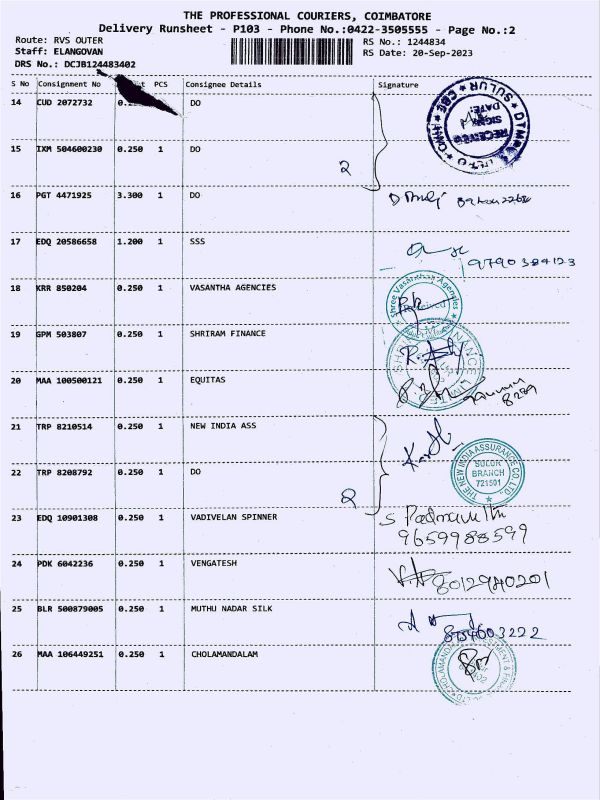 THE PROFESSIONAL COURIERS, COIMBATORE
Delivery Runsheet - P103 - Phone No.:0422-3505555 - Page No.:2
Route: RVS OUTER
RS No.: 1244834
Staff: ELANGOVAN
RS Date: 20-Sep-2023
DRS No.: DCJB124483402
S No Consignment No PCS Consignee Details Signature
14 CUD 2072732 DO
15 IXM 504600230 0.250 1 DO
2
16 PGT 4471925 3.300 1 DO
17 EDQ 20586658 1.200 1 SSS
9790384123
18 KRR 850204 0.250 1 VASANTHA AGENCIES
19 GPM 503807 0.250 1 SHRIRAM FINANCE
20 MAA 100500121 0.250 1 EQUITAS
8289
21 TRP 8210514 0.250 1 NEW INDIA ASS
THE NEW INDIA ASSURANCE CO. LTD.
SULUR
BRANCH
721501
22 TRP 8208792 0.250 1 DO
2
23 EDQ 10901308 0.250 1 VADIVELAN SPINNER
9659988599
24 PDK 6042236 0.250 1 VENGATESH
8012940201
25 BLR 500879005 0.250 1 MUTHU NADAR SILK
8754603222
26 MAA 106449251 0.250 1 CHOLAMANDALAM